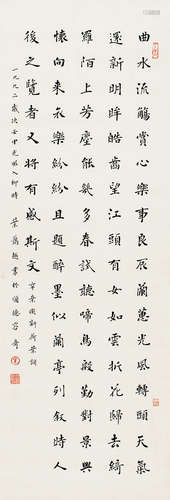 曲水流觴賞心樂事良辰蘭蕙光風轉頭天氣
還新明眸皓齒望江頭有女如雲折花歸去綺
羅陌上芳塵能幾多春試聽啼鳥殷勤對景興
懷向來哀樂紛紛且題醉墨似蘭亭列敘時人
後之覽者又將有感斯文 辛棄疾新荷葉詞
一九九二歲次壬申光風入柳時 葉 書於順德容奇